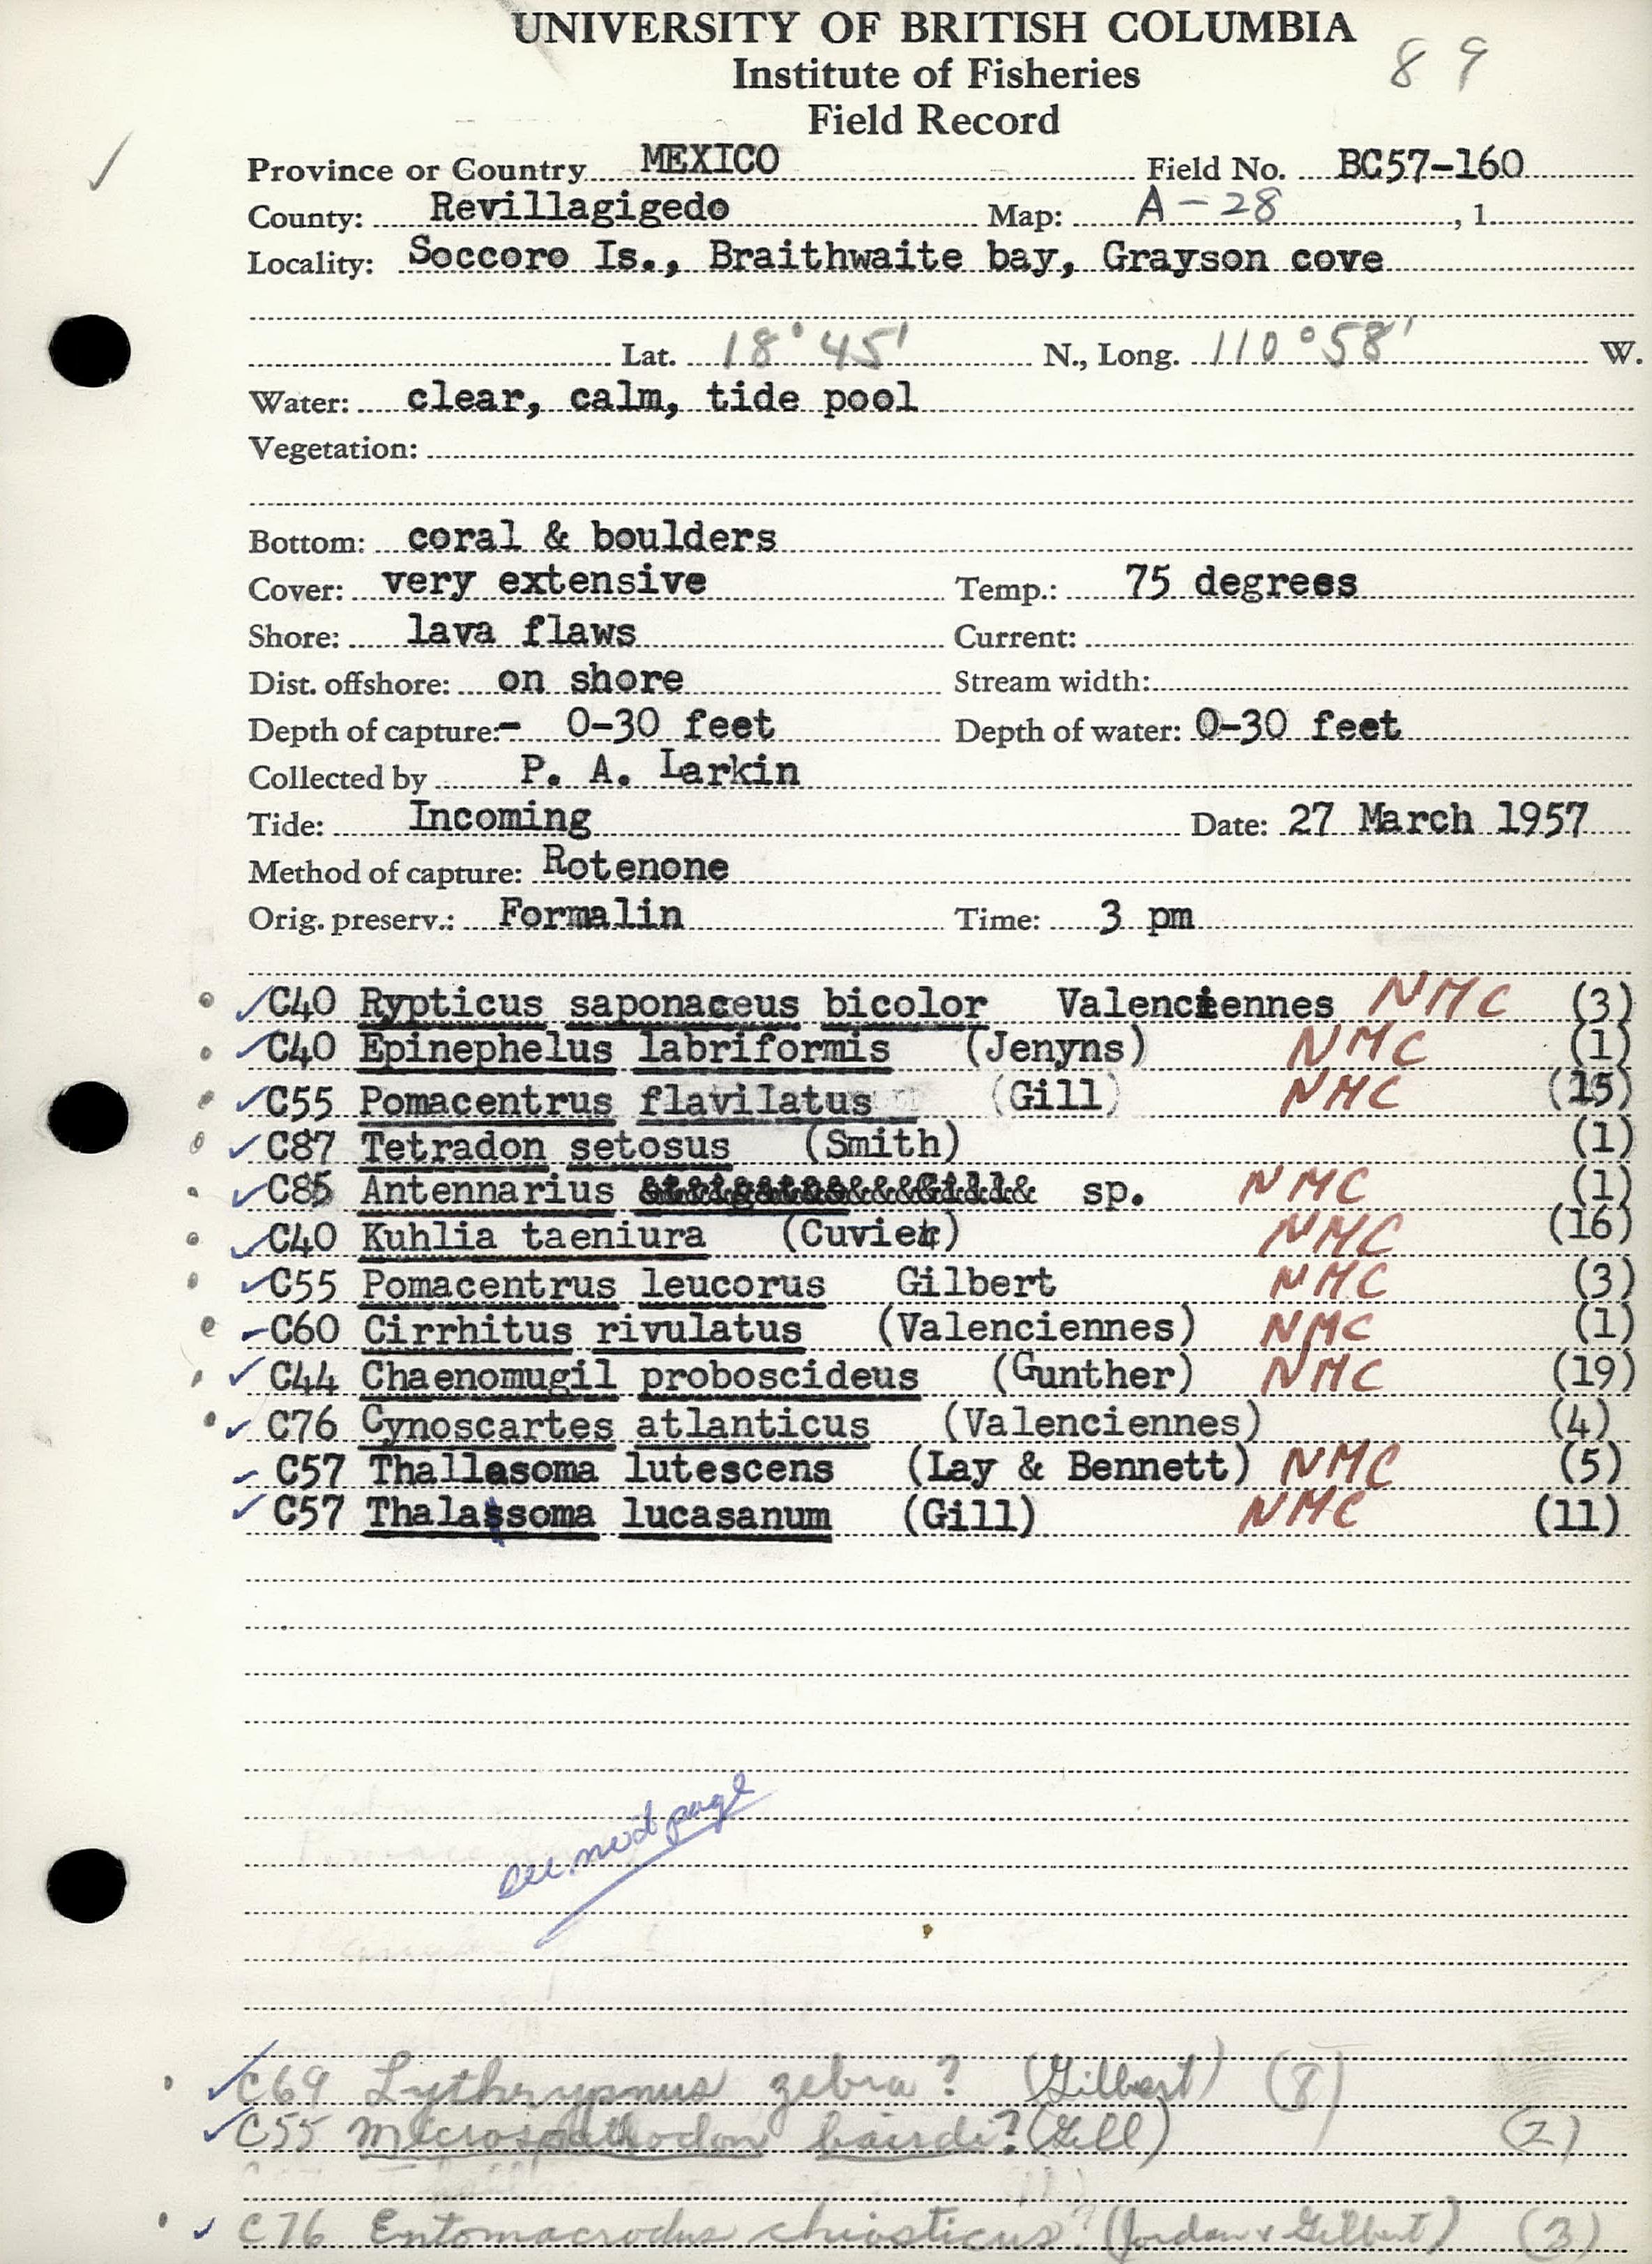 UNIVERSITY OF BRITISH COLUMBIA
89
Institute of Fisheries
Field Record
Province or Country MEXICO Field No. BC57-160
County: Revillagigedo Map: A-28, 1
Locality: Soccoro Is., Braithwaite bay, Grayson cove
Lat. 18°45' N., Long. 110°58' W.
Water: clear, calm, tide pool
Vegetation:
Bottom: coral & boulders
Cover: very extensive Temp.: 75 degrees
Shore: lava flaws Current:
Dist. offshore: on shore Stream width:
Depth of capture:- 0-30 feet Depth of water: 0-30 feet
Collected by P. A. Larkin
Tide: Incoming Date: 27 March 1957
Method of capture: Rotenone
Orig. preserv.: Formalin Time: 3 pm
C40 Rypticus saponaceus bicolor Valenciennes NMC (3)
C40 Epinephelus labriformis (Jenyns) NMC (1)
C55 Pomacentrus flavilatus (Gill) NMC (15)
C87 Tetradon setosus (Smith) (1)
C85 Antennarius sp. NMC (1)
C40 Kuhlia taeniura (Cuvier) NMC (16)
C55 Pomacentrus leucorus Gilbert NMC (3)
C60 Cirrhitus rivulatus (Valenciennes) NMC (1)
C44 Chaenomugil proboscideus (Gunther) NMC (19)
C76 Cynoscartes atlanticus (Valenciennes) (4)
C57 Thallasoma lutescens (Lay & Bennett) NMC (5)
C57 Thalassoma lucasanum (Gill) NMC (11)
see next page
C69 Lythrypnus zebra? (Gilbert) (8)
C55 Microspathodon bairdi? (Gill) (2)
C76 Entomacrodus chiosticus? (Jordan & Gilbert) (3)